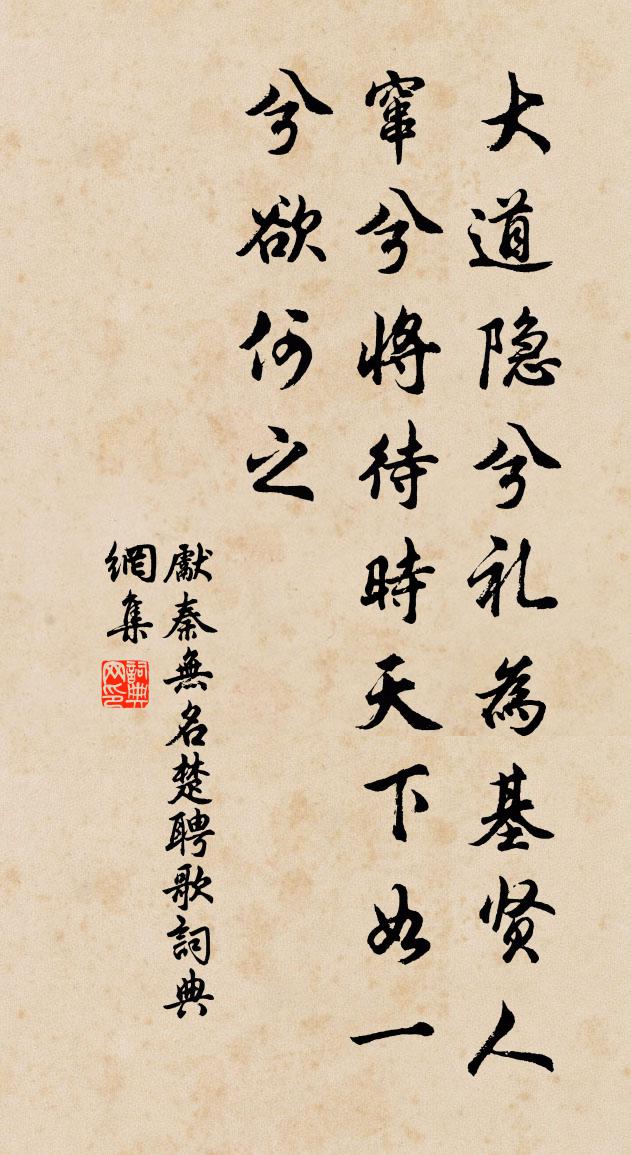 大道隐兮礼為基賢人
窜兮将待時天下如一
兮欲何之
獻秦無名楚聘歌詞典
網集
詞典
网印